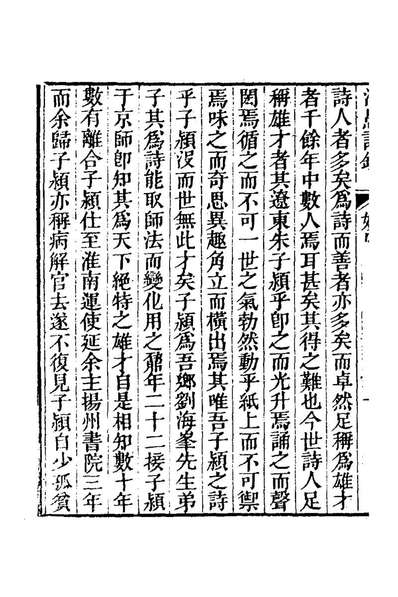 詩人者多矣爲詩而善者亦多矣而卓然足稱爲雄才
者千餘年中數人焉耳甚矣其得之難也今世詩人足
稱雄才者其遼東朱子潁乎卽之而光升焉誦之而聲
閎焉循之而不可一世之氣勃然動乎紙上而不可禦
焉味之而奇思異趣角立而橫出焉其唯吾子潁之詩
乎子潁沒而世無此才矣子潁爲吾鄉劉海峯先生弟
子其爲詩能取師法而變化用之鼐年二十二接子潁
于京師卽知其爲天下絕特之雄才自是相知數十年
數有離合子潁仕至淮南運使延余主揚州書院三年
而余歸子潁亦稱病解官去遂不復見子潁自少孤貧